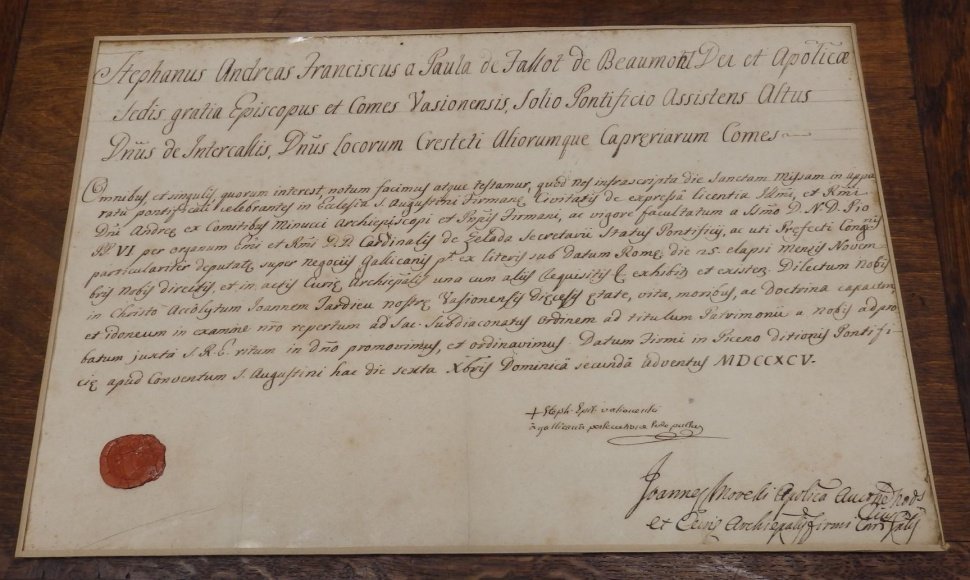 Stephanus Andreas Franciscus a Paula de Fallot de Beaumont Dei et Apolicæ
Sedis gratia Episcopus et Comes Vasionensis, Solio Pontificio Assistens Altus
Dnus de Intercallis, Dnus Locorum Cresteti Aliorumque Caprериarum Comes
Omnibus, et singulis, quorum interest, notum facimus atque testamur, quod nos infrascripta die Sanctam Missam in appa
ratu pontificali celebrantes in Ecclesia S. Augustini Firmanę Civitatis de expressa licentia Illmi, et Rmi
Dni Andreę ex Comitibus Minucci Archiepiscopi et Pnpis Firmani, ac vigore facultatum a SSmo D. N. D. Pio
PP VI per organum Emi et Rmi D. D. Cardinalis de Zelada Secretarii Status Pontificii, ac uti Prefecti Congnis
particulariter deputatę super negociis Gallicanis pt ex literis sub Datum Romę die 25. elapsi mensis Novem
bris Nobis directis, et in actis Curię Archiepalis una cum aliis Requisitis exhibitis et existen. Dilectum Nobis
in Christo Accolytum Joannem Tardieu nostrę Vasionensis Dięcesis ętate, vita, moribus, ac doctrina capacem
et idoneum in examine nro repertum ad Sac. Subdiaconatus Ordinem ad titulum Patrimonii a nobis adpro
batum juxta S. R. E. ritum in Dno promovimus, et ordinavimus Datum Firmi in Piceno ditionis Pontifi-
cię apud Conventum S. Augustini hac die sexta Xbris Dominica secunda adventus MDCCXCV.
+ Steph. Epis. vasionensis
gallicana persecutione
Joannes Morelli Aplica Aucte
et Curię Archiepalis Firmi